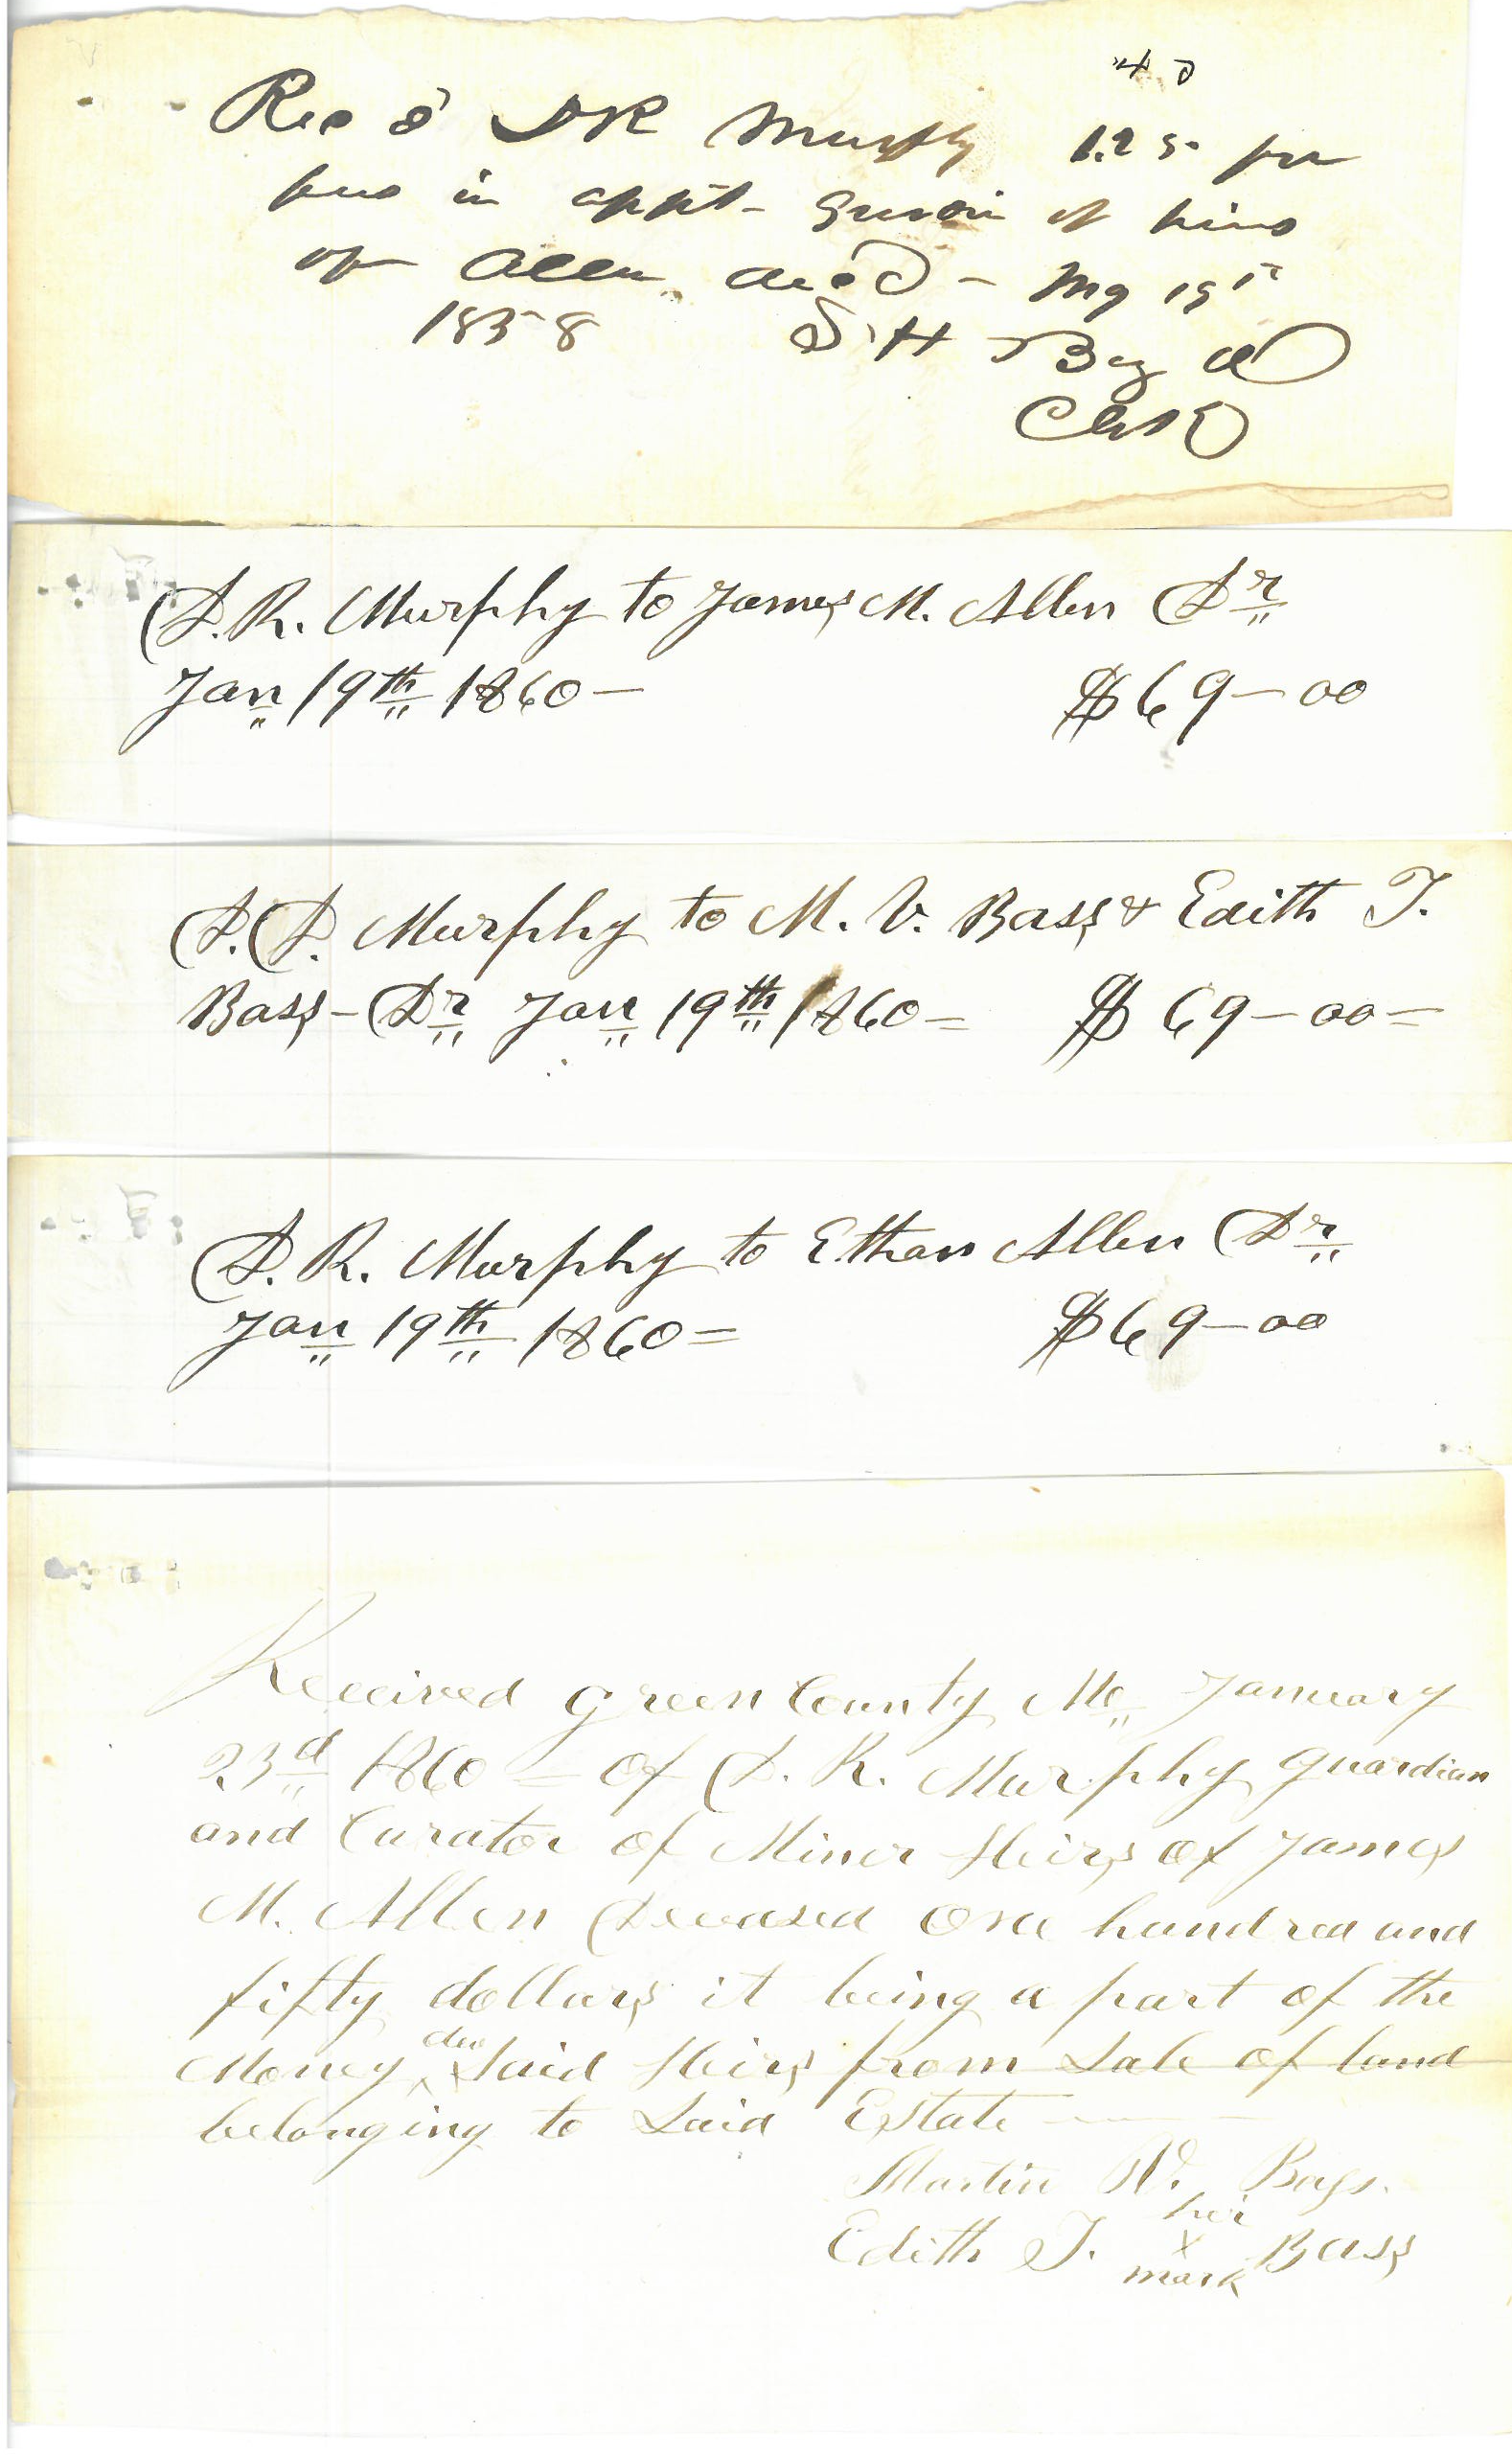 Recd D R Murphy 1.25 for
fees in appt- of heirs
of Allen decd - 15th
1858 S H Boyd
Clerk
D. R. Murphy to James M. Allen Dr
Jan 19th 1860 - $69-00
D. D. Murphy to M. V. Bass & Edith T.
Bass - Dr Jan 19th 1860 = $69-00=
D. R. Murphy to Ethan Allen Dr
Jan 19th 1860 = $69-00
Received Green County Mo January
23d 1860 = of D. R. Murphy guardian
and Curator of Minor Heirs of James
M. Allen Deceased One hundred and
fifty dollars it being a part of the
due
Money ^ Said Heirs from Sale of land
belonging to Said Estate
Martin V. Bass.
her
Edith T. x Bass
mark